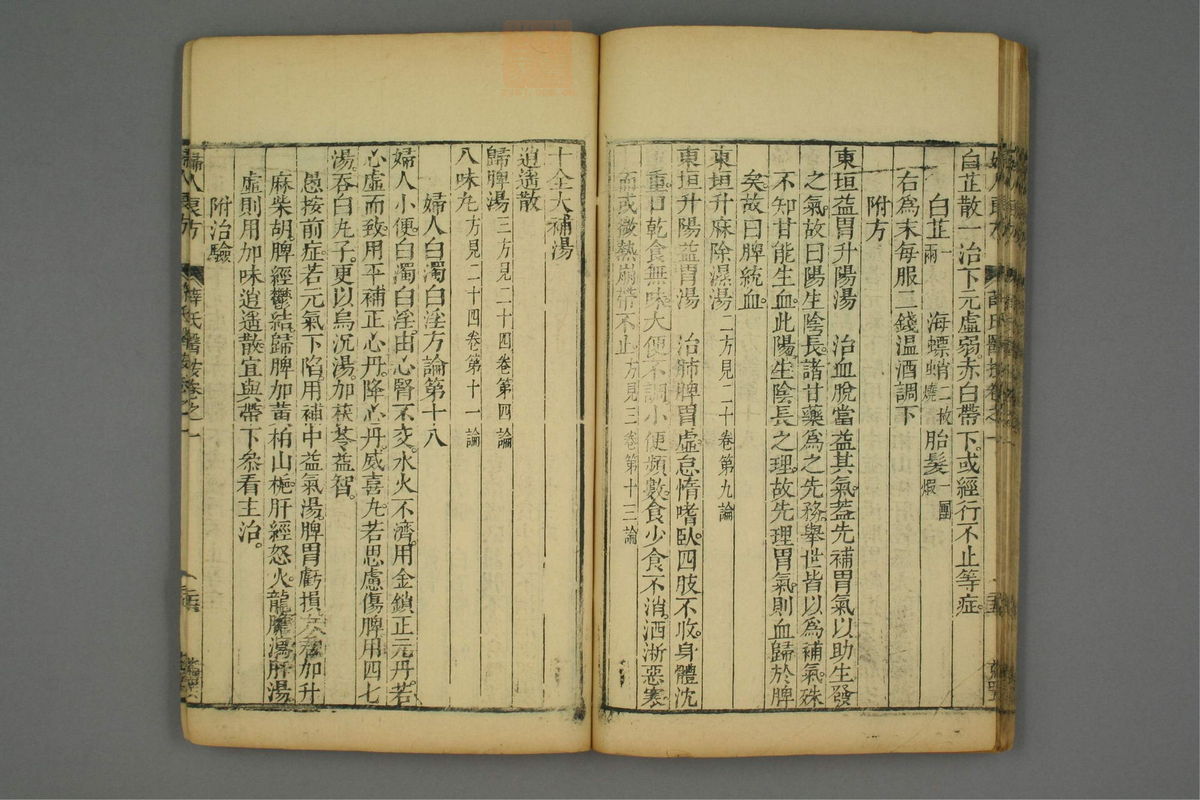 白芷散一治下元虛弱赤白帶下或經行不止等症。
白芷一兩 海螵蛸二枚燒 胎髮一團煆
右為末每服二錢温酒調下
附方
東垣益胃升陽湯 治血脫當益其氣。葢先補胃氣以助生發
之氣。故曰陽生陰長。諸甘藥為之先務。舉世皆以為補氣。殊
不知甘能生血。此陽生陰長之理。故先理胃氣。則血歸於脾
矣。故曰脾統血。
東垣升麻除濕湯二方見二十卷第九論
東垣升陽益胃湯 治肺脾胃虛。怠惰嗜臥。四肢不收。身體沈
重。口乾食無味。大便不調。小便頻數。食少食不消。洒淅惡寒
而或微熱崩帶不止方見三卷第十三論
十全大補湯
逍遙散
歸脾湯三方見二十四卷第四論
八味丸方見二十四卷第十一論
婦人白濁白淫方論第十八
婦人小便白濁白淫。由心腎不交。水火不濟。用金鎖正元丹。若
心虛而致。用平補正心丹。降心丹。威喜丸。若思慮傷脾用四七
湯。吞白丸子。更以烏沉湯加茯苓益智。
愚按前症。若元氣下陷。用補中益氣湯。脾胃虧損。六君加升
麻柴胡。脾經鬱結。歸脾加黃柏山梔。肝經怒火。龍膽瀉肝湯。
虛則用加味逍遙散。宜與帶下叅看主治。
附治驗